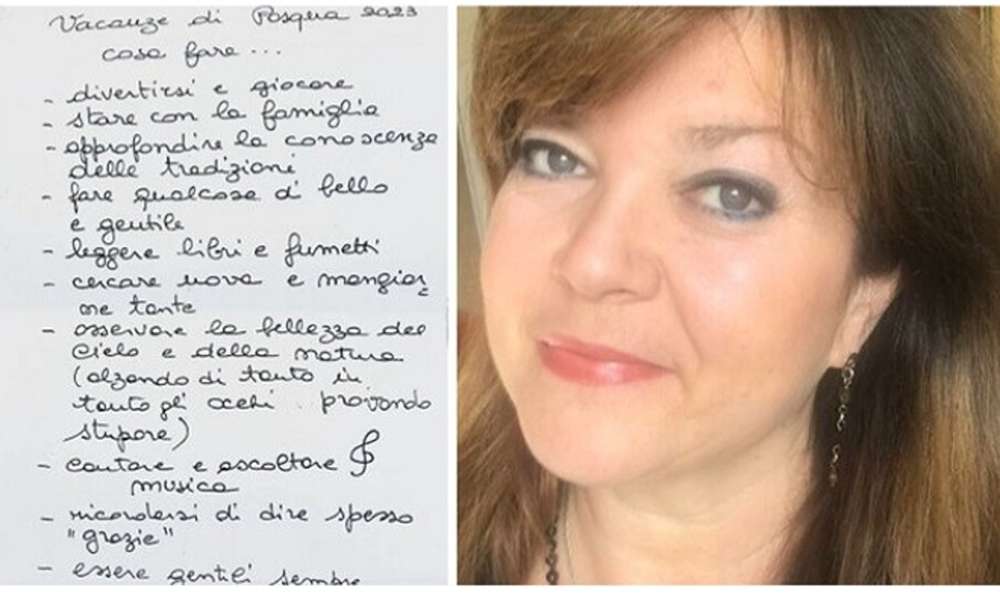 Vacanze di Pasqua 2023
cosa fare...
- divertirsi e giocare
- stare con la famiglia
- approfondire la conoscenza
delle tradizioni
- fare qualcosa di bello
e gentile
- leggere libri e fumetti
- cercare uova e mangiar
ne tante
- osservare la bellezza del
cielo e della natura
(alzando di tanto in
tanto gli occhi provando
stupore)
- cantare e ascoltare
musica
- ricordarsi di dire spesso
"grazie"
- essere gentili sempre